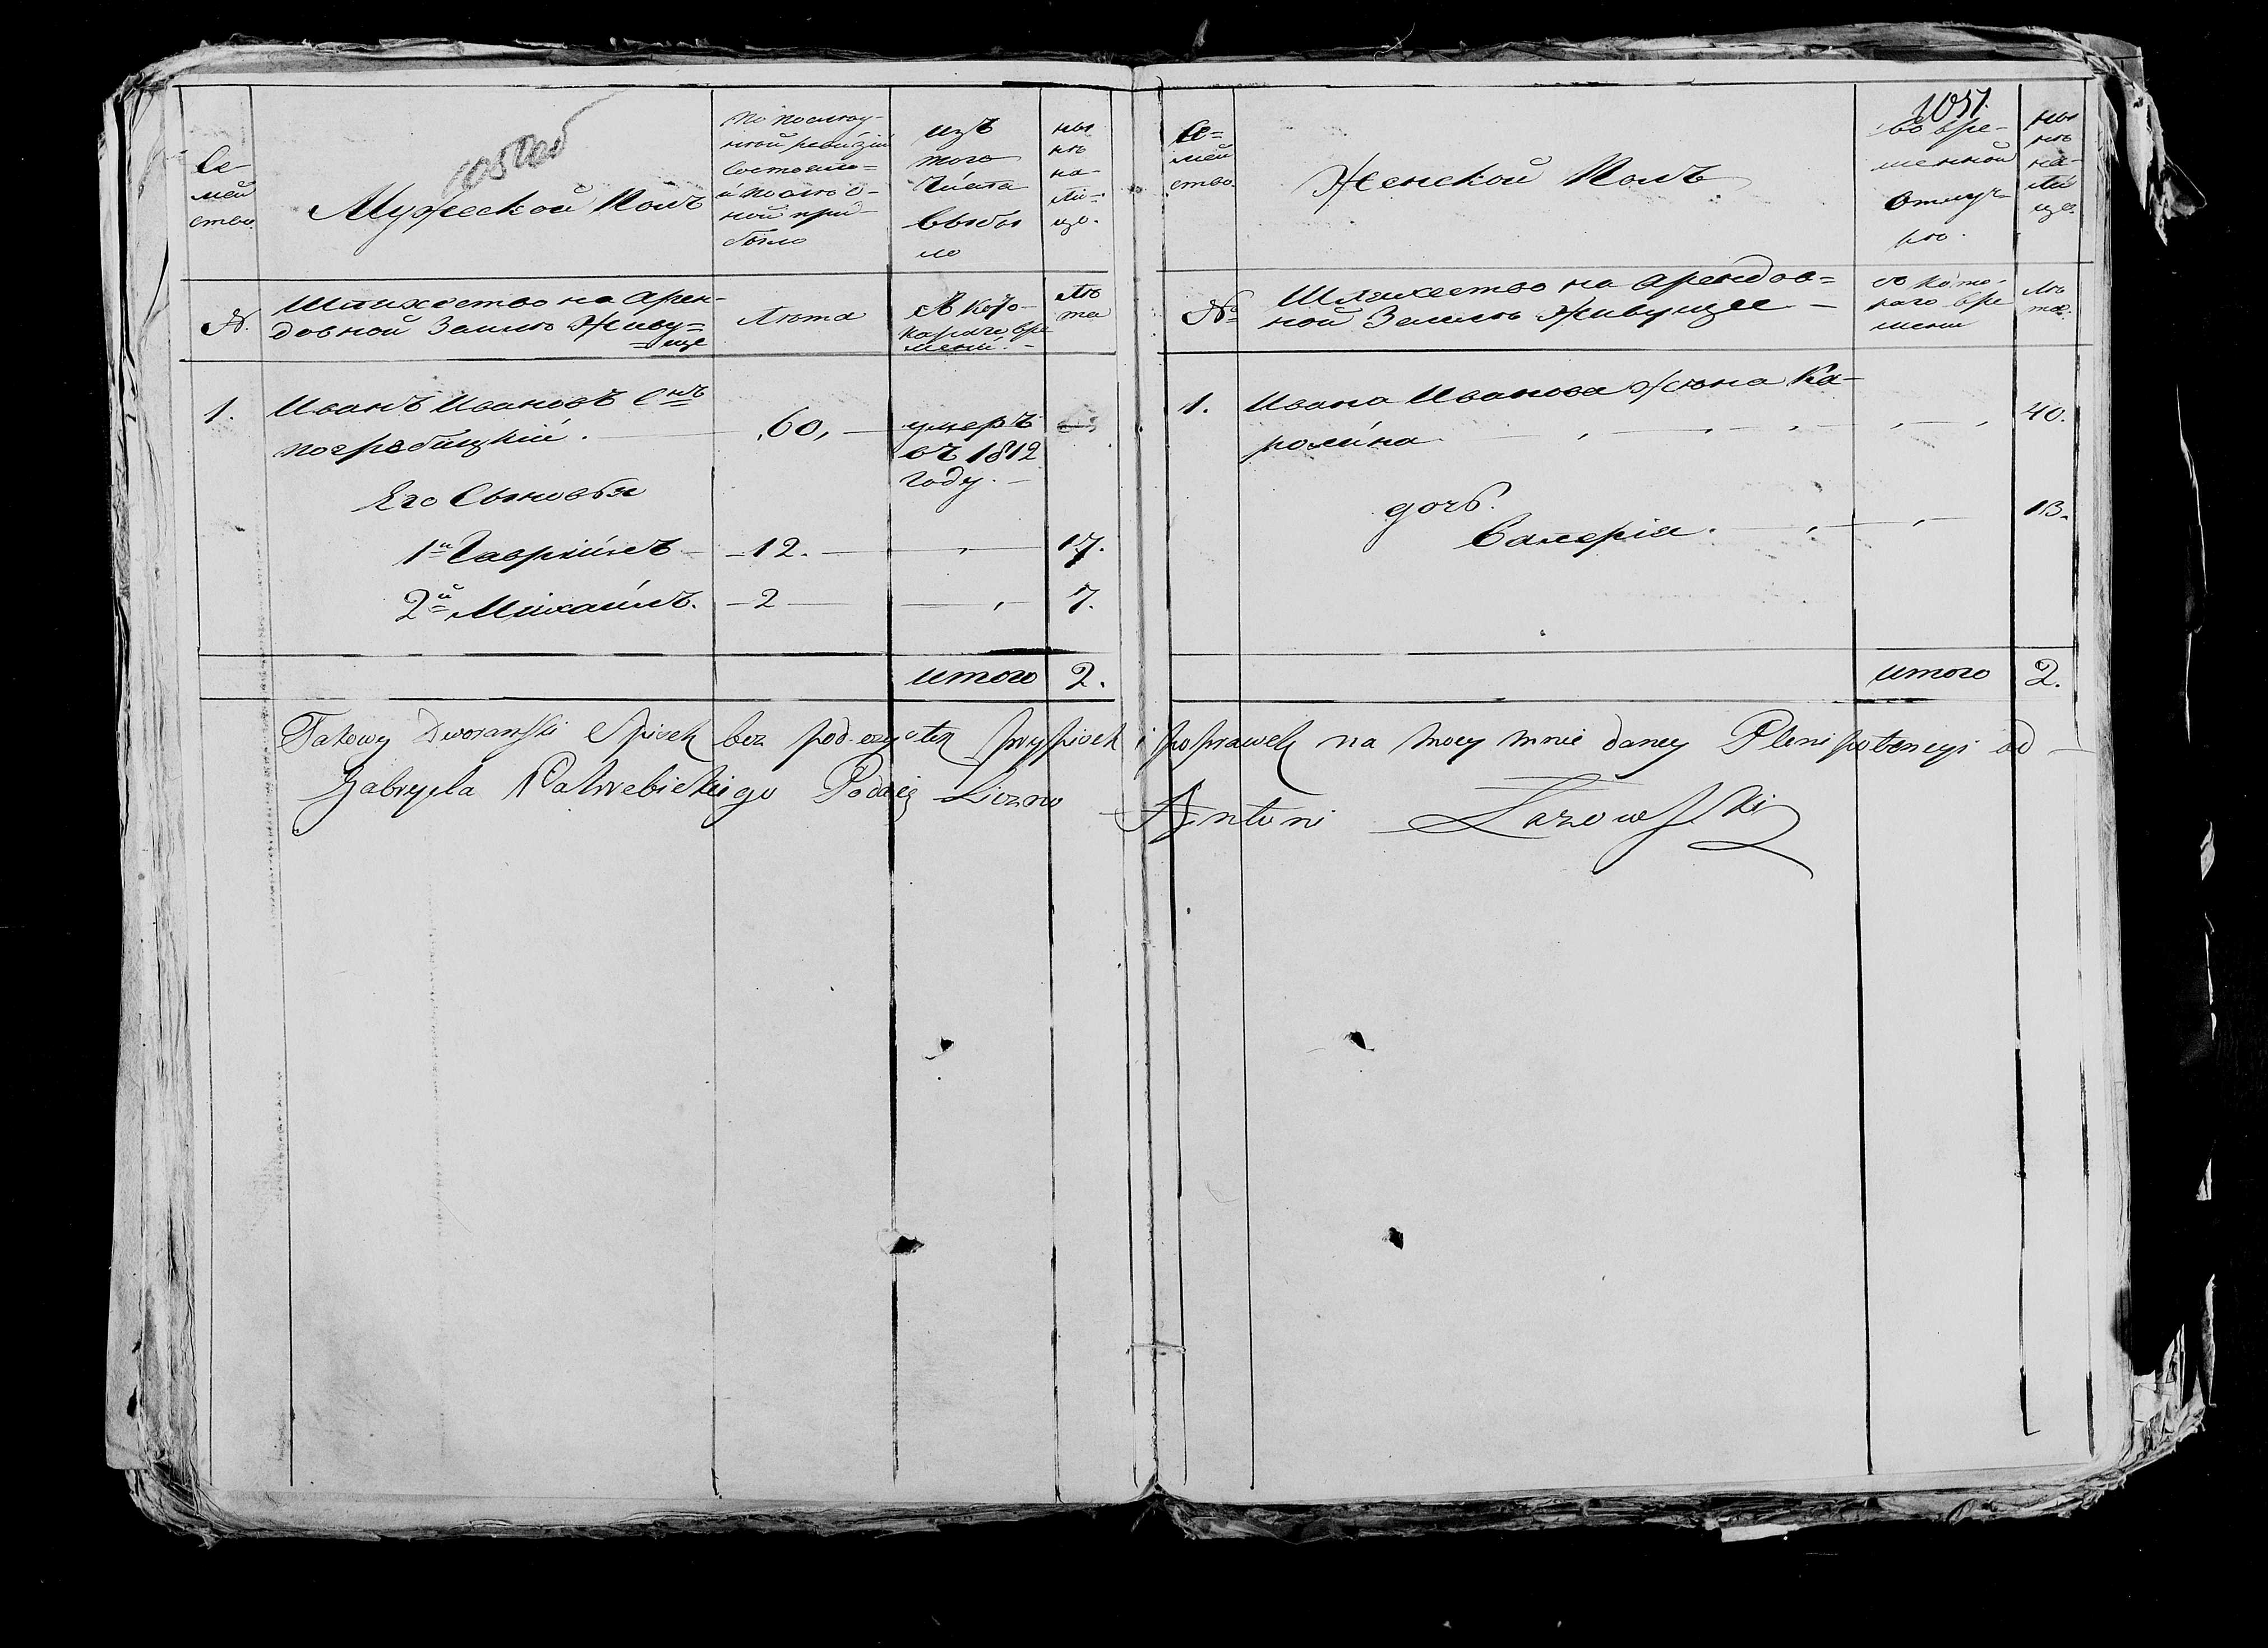 Се-
мей
ство.
Мужеской Полъ
По послед-
ней ревизіи
состояло
и после о-
ной при-
было
изъ
того
Числа
выбы
ло
ны
не
на-
ли-
цо.
№.
Шляхество на Арен-
довной Земле Живу=
=ще
Лета
Съ кото-
раго вре
мени. -
Ле
та
1.
Иванъ Ивановъ Снъ
60,
умеръ
въ 1812
Году. -
Его Сыновья
1й Гавріилъ
12.
17.
2й Михаилъ.
2
7.
итого
2.
1051.
Се=
мей
ство.
Женской Полъ
во вре-
менной
Отлуч-
ке.
ны
не
на-
ли
це.
№
Шляхество на Арендов=
ной Земле Живущее
съ кото-
раго вре
мени
Ле
та.
1.
Ивана Иванова Жена Ка-
ролина
40.
дочь.
Валерія.
13.
итого
2.
Takowy Dworanski Spisek bez podczystek przypisek i poprawek na mocy mnie daney Plenipotencyi od
Gabryela Podaię Liozno Antoni